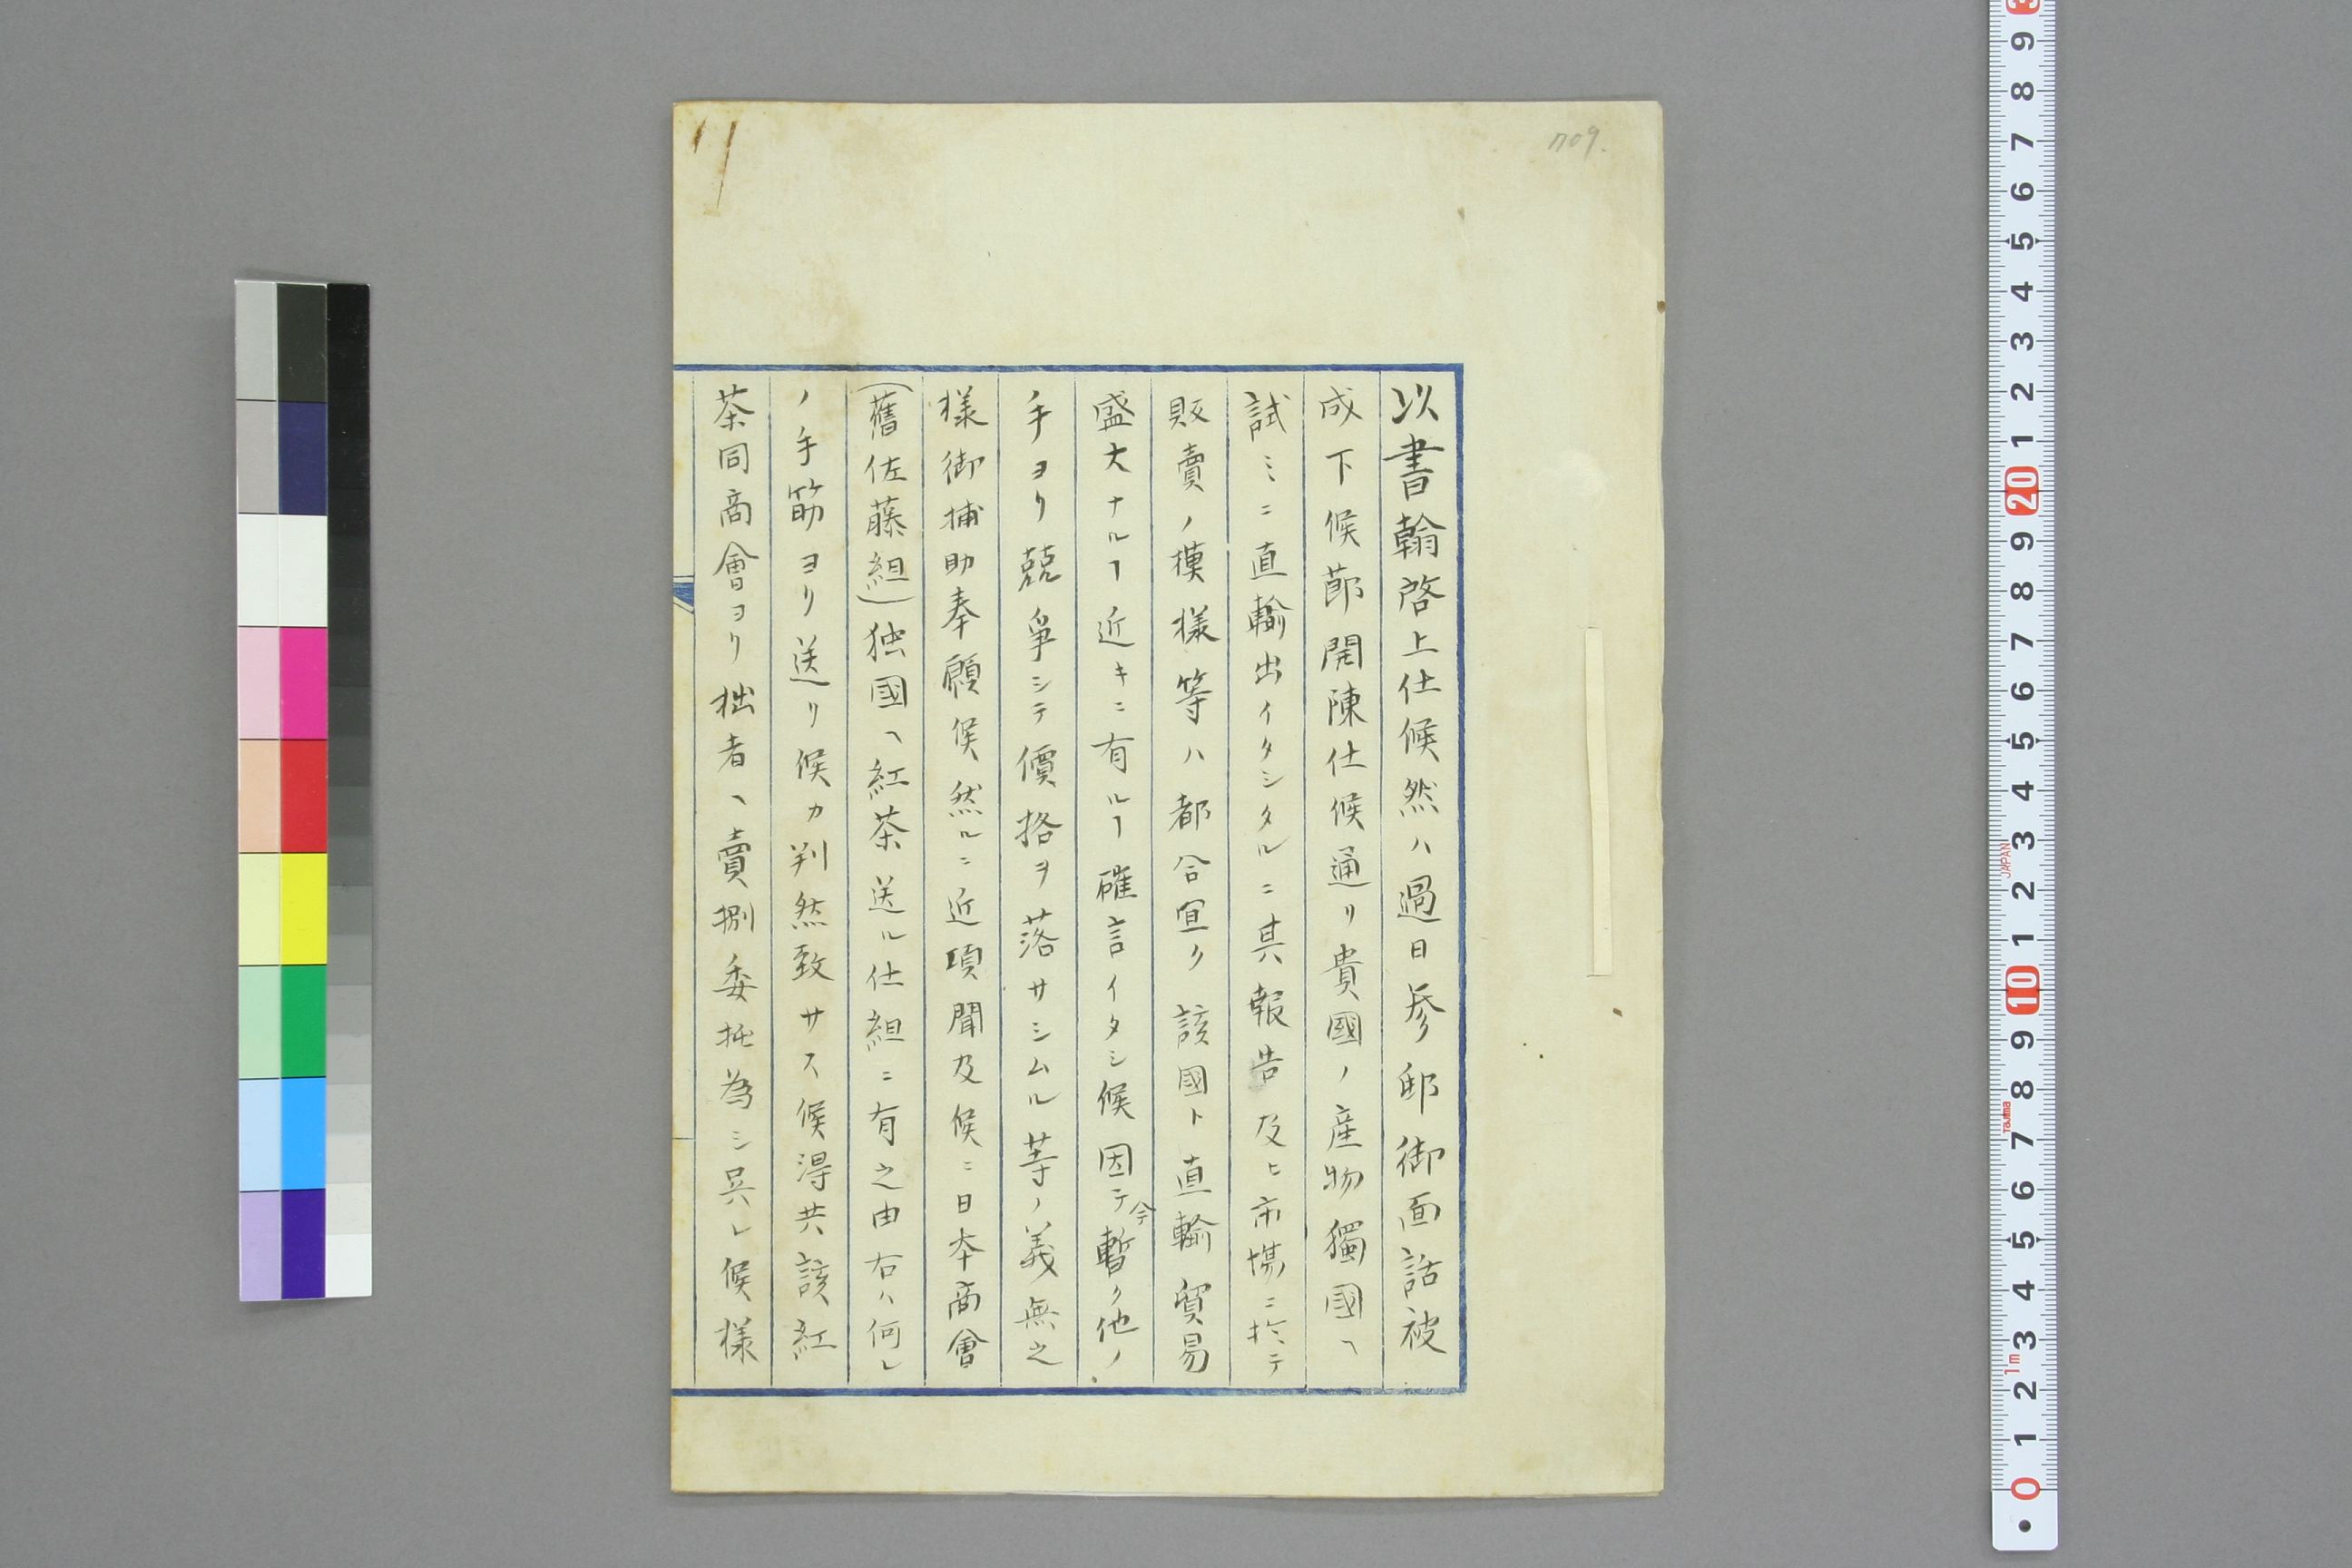 709.
以書翰啓上仕候然ハ過日参邸御面話被
成下候節開陳仕候通リ貴國ノ産物獨國ヘ
試ミニ直輸出イタシタルニ其報告及ヒ市場ニ於テ
販賣ノ摸様等ハ都合宜ク該國ト直輸貿易
盛大ナルヿ近キニ有ルヿ確言イタシ候因テ今暫ク他ノ
手ヨリ競争シテ價格ヲ落サシムル等ノ義無之
様御補助奉願候然ルニ近項聞及候ニ日本商會
(舊佐藤組)独國ヘ紅茶送ル仕組ニ有之由右ハ何レ
ノ手筋ヨリ送リ候カ判然致サス候得共該紅
茶同商會ヨリ拙者ヘ賣捌委托為シ呉レ候様
0 1 2 3 4 5 6 7 8 9 10 1 2 3 4 5 6 7 8 9 20 1 2 3 4 5 6 7 8 9 3
1m
Tajima
JAPAN